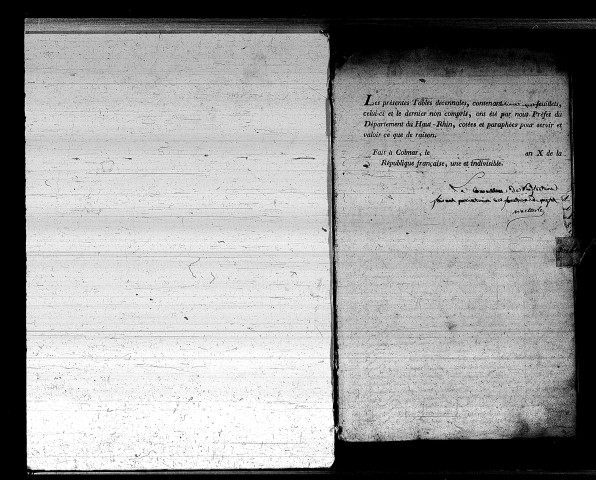 Les présentes Tables décennales, contenant feuillets,
celui-ci et le dernier non compris, ont été par nous Préfet du
Département du Haut-Rhin, cotées et paraphées pour servir et
valoir ce que de raison.
Fait à Colmar, le an X de la
République française, une et indivisible.
Le Conseiller de Préfecture